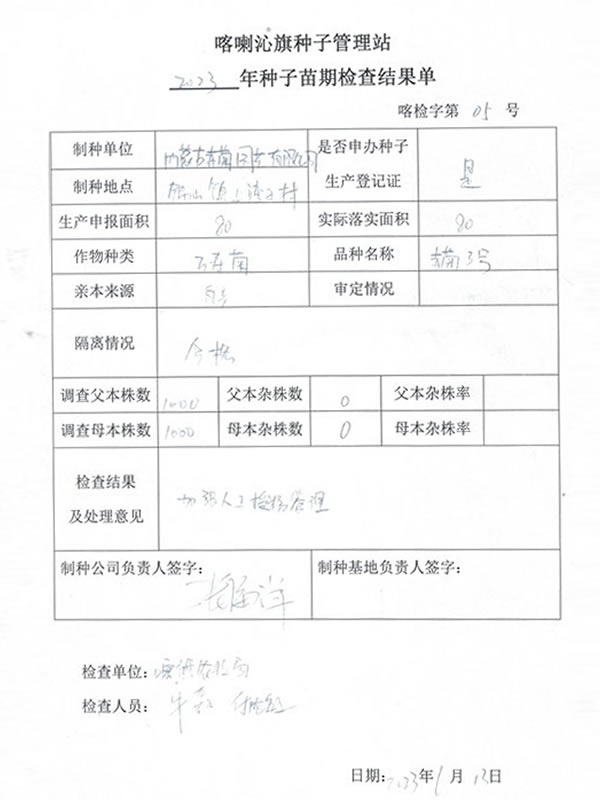 喀喇沁旗种子管理站
2023 年种子苗期检查结果单
喀检字第 05 号
制种单位
是否申办种子生产登记证 是
制种地点
生产申报面积 80 实际落实面积 80
作物种类 万寿菊 品种名称 3号
亲本来源 审定情况
隔离情况 合格
调查父本株数 1000 父本杂株数 0 父本杂株率
调查母本株数 1000 母本杂株数 0 母本杂株率
检查结果及处理意见 加强人工 管理
制种公司负责人签字: 制种基地负责人签字:
检查单位:
检查人员:
日期: 2023年 月 13日